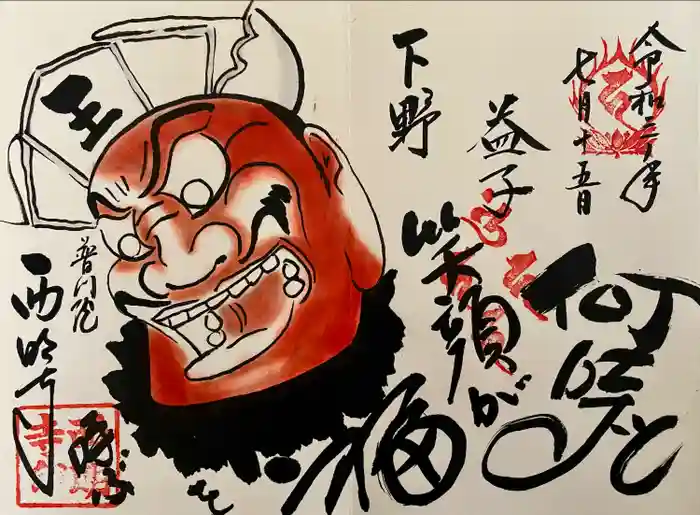 令和三年
七月十五日
下野
益子
笑顔が
福
を
呼ぶ
王
普門院
西明寺